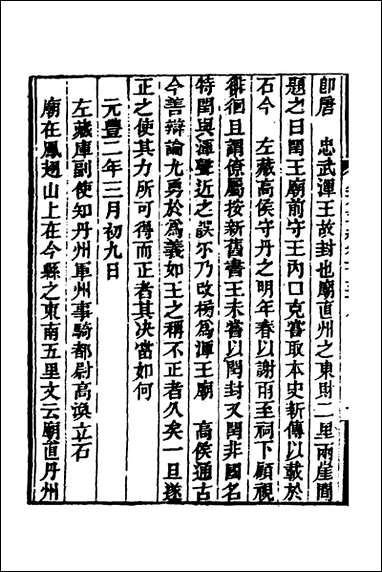 即唐　忠武渾王故封也廟直州之東財二里兩崖間
題之曰閏王廟前守王丙口克嘗取本史新傳以載於
石今　左藏高侯守丹之明年春以謝雨至祠下顧視
徘徊且謂僚屬按新舊書王未嘗以閏封又閏非國名
特閏與渾聲近之誤尓乃改榜為渾王廟　高侯通古
今善辯論尤勇於為義如王之稱不正者久矣一旦遂
正之使其力所可得而正者其決當如何
元豐二年三月初九日
左藏庫副使知丹州軍州事騎都尉高渙立石
廟在鳳翅山上在今縣之東南五里文云廟直丹州